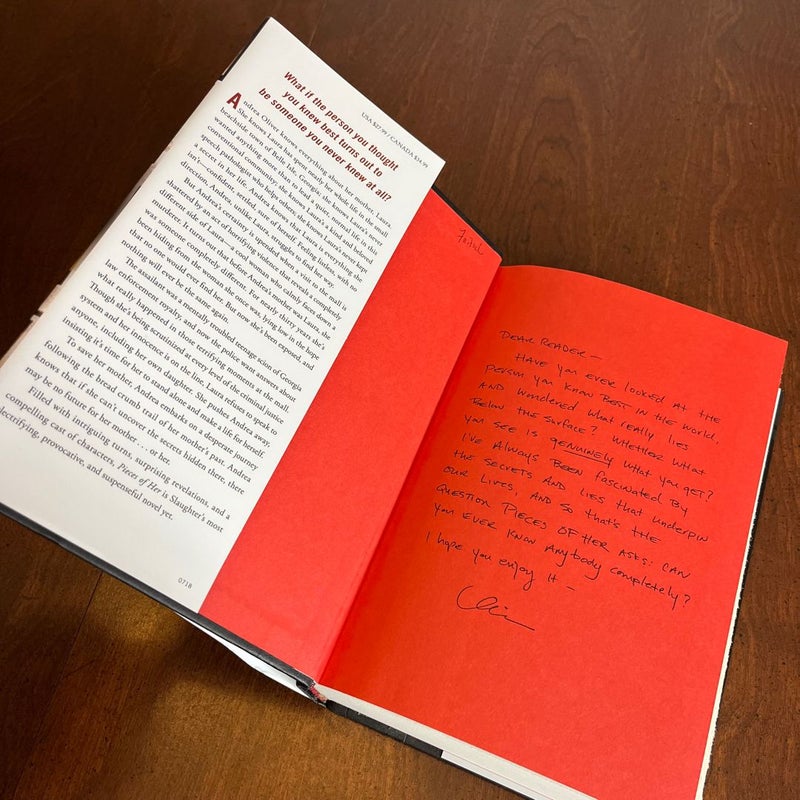 USA $27.99 / CANADA $34.99
What if the person you thought
you knew best turns out to
be someone you never knew at all?
Andrea Oliver knows everything about her mother, Laura.
She knows Laura has spent nearly her whole life in the small
beachside town of Belle Isle, Georgia; she knows Laura's never
wanted anything more than to lead a quiet, normal life in this
conventional community; she knows Laura's a kind and beloved
speech pathologist who helps others; she knows Laura's never kept
a secret in her life. Andrea knows that Laura is everything she
isn't—confident, settled, sure of herself. Feeling listless, with no
direction, Andrea, unlike Laura, struggles to find her way.
But Andrea's certainty is upended when a visit to the mall is
shattered by an act of horrifying violence that reveals a completely
different side of Laura—a cool woman who calmly faces down a
murderer. It turns out that before Andrea's mother was Laura, she
was someone completely different. For nearly thirty years she's
been hiding from the woman she once was, lying low in the hope
that no one would ever find her. But now she's been exposed, and
nothing will ever be the same again.
The assailant was a mentally troubled teenage scion of Georgia
law enforcement royalty, and now the police want answers about
what really happened in those terrifying moments at the mall.
Though she's being scrutinized at every level of the criminal justice
system and her innocence is on the line, Laura refuses to speak to
anyone, including her own daughter. She pushes Andrea away,
insisting it's time for her to stand alone and make a life for herself.
To save her mother, Andrea embarks on a desperate journey
following the bread crumb trail of her mother's past. Andrea
knows that if she can't uncover the secrets hidden there, there
may be no future for her mother . . . or her.
Filled with intriguing turns, surprising revelations, and a
compelling cast of characters, Pieces of Her is Slaughter's most
electrifying, provocative, and suspenseful novel yet.
0718
DEAR READER —
HAVE you EVER LOOKED AT THE
PERSON you KNOW BEST IN THE WORLD,
AND WONDERED WHAT REALLY LIES
BELOW THE SURFACE? WHETHER WHAT
you SEE IS GENUINELY WHAT you GET?
I'VE ALWAYS BEEN FASCINATED BY
THE SECRETS AND LIES THAT UNDERPIN
OUR LIVES, AND SO THAT'S THE
QUESTION PIECES OF HER ASKS: CAN
you EVER KNOW ANYBODY COMPLETELY?
I hope you enjoy it —